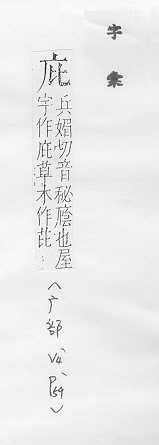 字彙
庇
兵媚切音秘廕也屋
宇作庇草木作芘
(广部 V4、P59)